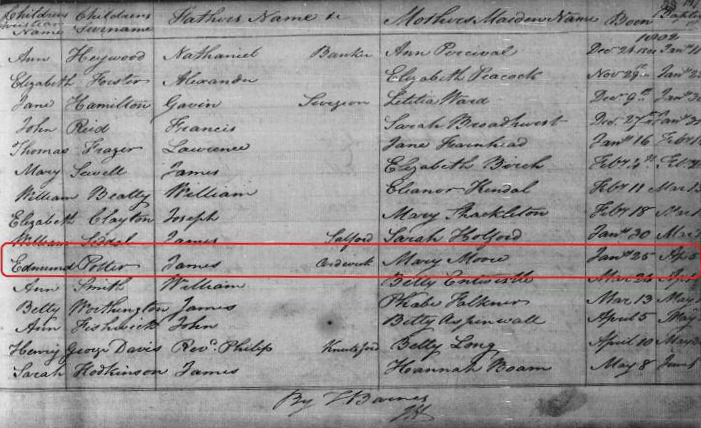 Childrens Christian Name Childrens Surname Fathers Name &c Mothers Maiden Name Born Baptiz
1802
Ann Heywood Nathaniel Banker Ann Percival Decr 24 1801 Jany
Elizabeth Foster Alexander Elizabeth Peacock Novr 29th Jany 2
Jane Hamilton Gavin Surgeon Letitia Ward Decr 9th Jany 3
John Reid Francis Sarah Broadhurst Decr 27th Jany 3
Thomas Frazer Lawrence Jane Fearnhead Jany 16 Feby
Mary Sewell James Elizabeth Birch Feby 4th Feby 2
William Beatty William Eleanor Kendal Feby 11 Mar 1
Elizabeth Clayton Joseph Mary Shackleton Feby 18 Mar
William Siddal James Salford Sarah Holford Jany 30 Mar 2
Edmund Potter James Ardwick Mary Moore Jany 25 Apl 5
Ann Smith William Betty Entwistle Mar 24 April
Betty Worthington James Phabe Falkner Mar 13 May
Ann Fishwick John Betty Aspinwall April 5 May
Henry George Davis Revd. Philip Knutsford Betty Long April 10 May
Sarah Hodkinson James Hannah Boam May 8 June
By T Barnes